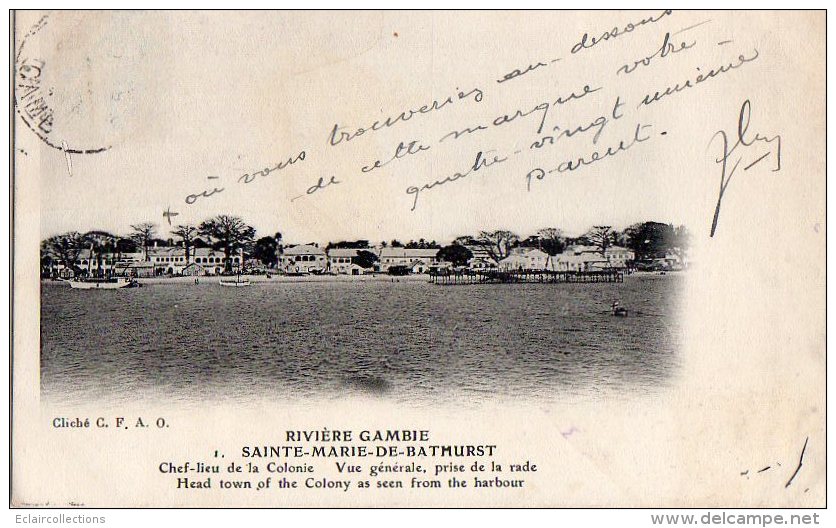 + où vous trouveriez au-dessous
de cette marque votre
quatre-vingt unième
parent.
Cliché C. F. A. O.
RIVIÈRE GAMBIE
1. SAINTE-MARIE-DE-BATHURST
Chef-lieu de la Colonie Vue générale, prise de la rade
Head town of the Colony as seen from the harbour
Eclaircollections
www.delcampe.net